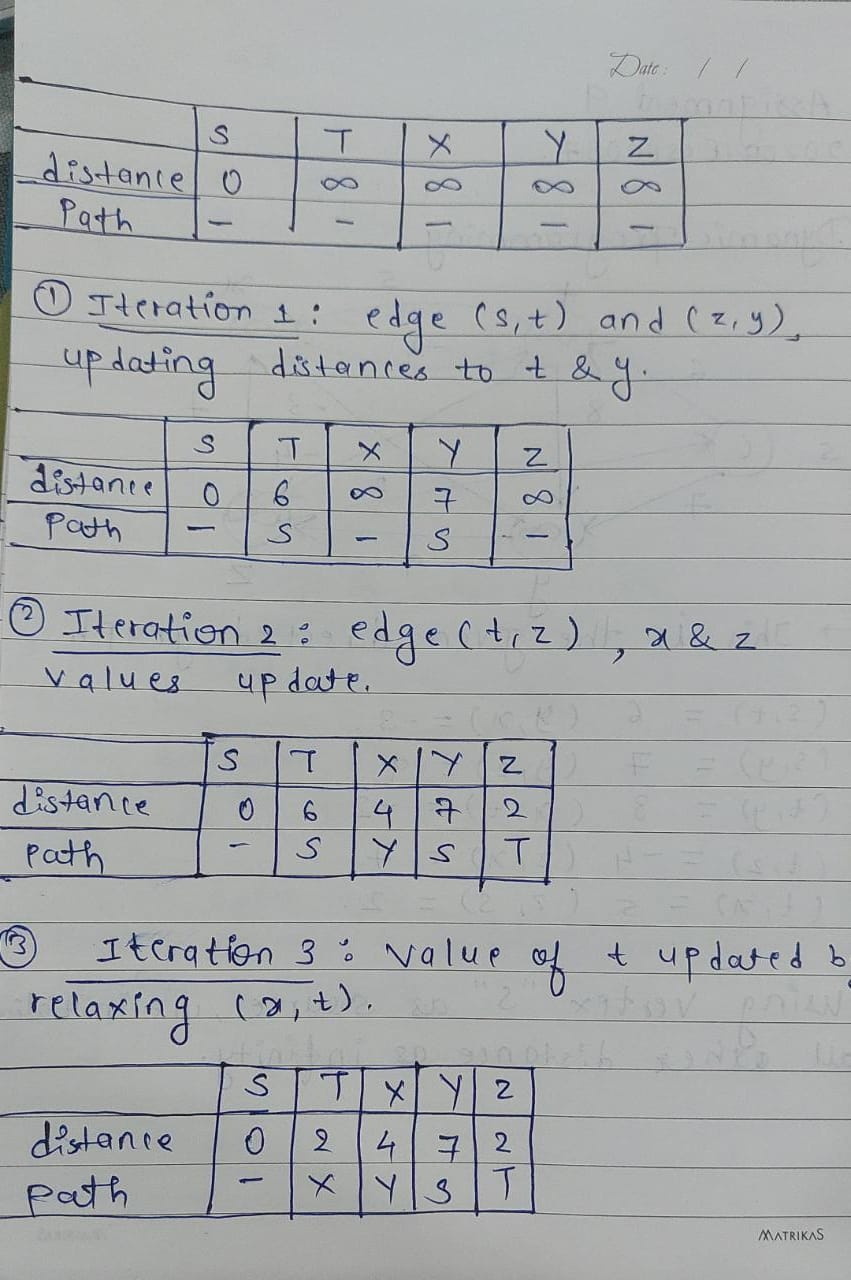 Date: / /
S T X Y Z
distance 0 ∞ ∞ ∞ ∞
Path - - - - -
① Iteration 1: edge (s,t) and (z,y),
updating distances to t & y.
S T X Y Z
distance 0 6 ∞ 7 ∞
Path - S - S -
② Iteration 2: edge (t,z), x & z
values update.
S T X Y Z
distance 0 6 4 7 2
Path - S Y S T
③ Iteration 3: value of t updated b
relaxing (x,t).
S T X Y Z
distance 0 2 4 7 2
Path - X Y S T
MATRIKAS